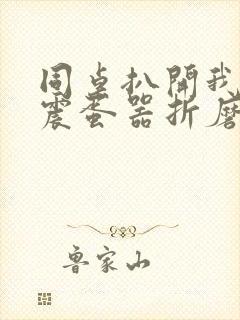 同桌扒開我
震蛋器折磨
魯家山